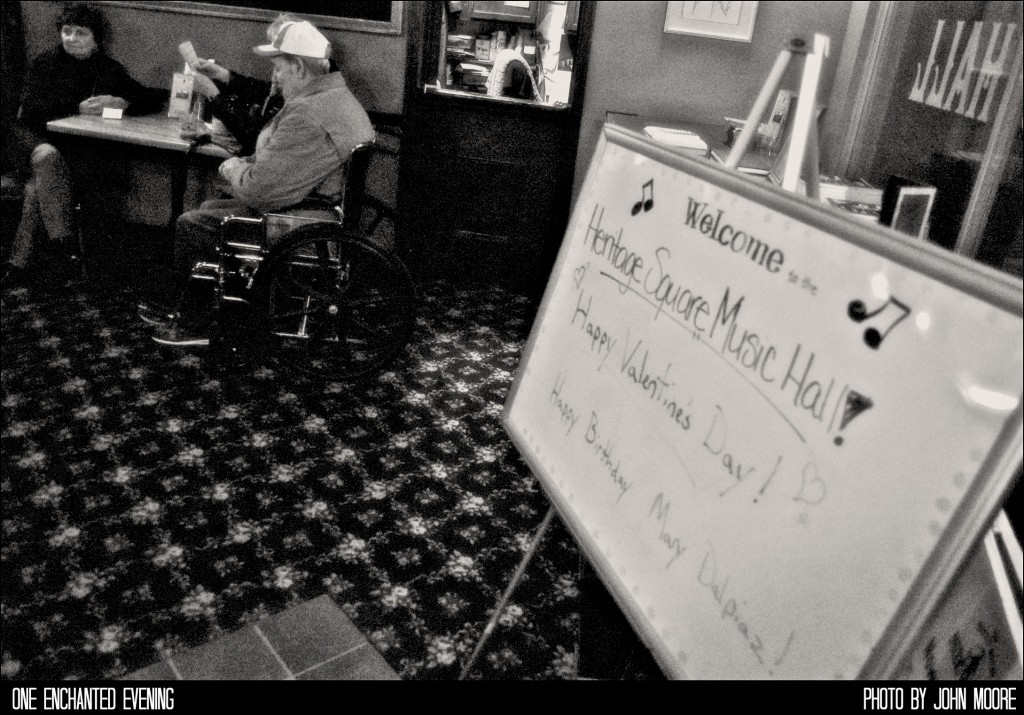 HALL
Welcome
to the
Heritage Square Music Hall!
Happy Valentine's Day!
Happy Birthday Mary Dalpiaz!
ONE ENCHANTED EVENING
PHOTO BY JOHN MOORE